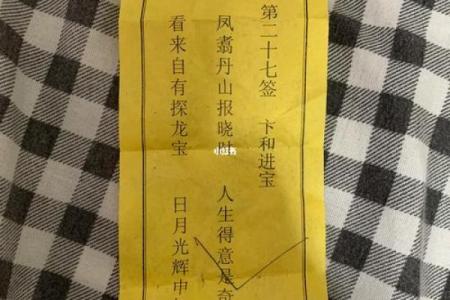 第二十七签 卞和进宝
凤翥丹山报晓时 人生得意是奇
看来自有探龙宝 日月光辉申
小红书